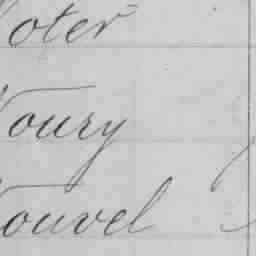 Noter
Noury
Nouvel